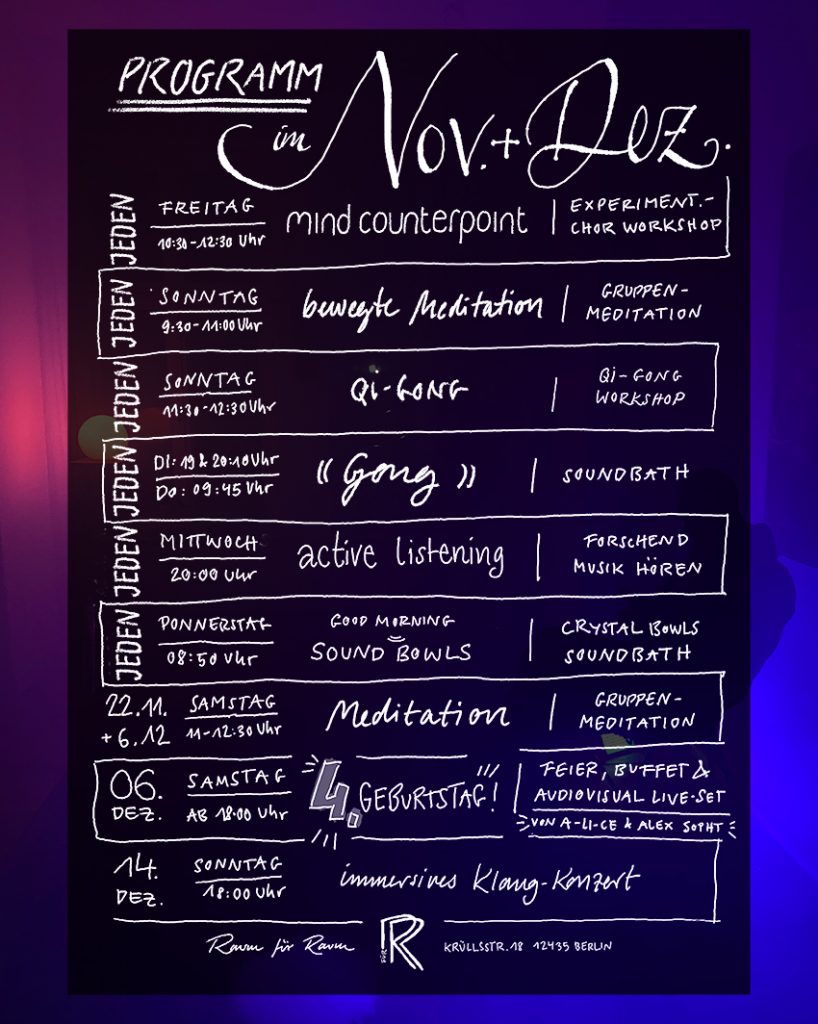 PROGRAMM
im Nov. + Dez.
JEDEN FREITAG
10:30-12:30 Uhr
mind counterpoint
EXPERIMENT.-
CHOR WORKSHOP
JEDEN SONNTAG
9:30-11:00 Uhr
bewegte Meditation
GRUPPEN-
MEDITATION
JEDEN SONNTAG
11:30-12:30 Uhr
Qi-GONG
Qi-GONG
WORKSHOP
JEDEN DI: 19 & 20:10 Uhr
Do: 09:45 Uhr
(( Gong ))
SOUNDBATH
JEDEN MITTWOCH
20:00 Uhr
active listening
FORSCHEND
MUSIK HÖREN
JEDEN DONNERSTAG
08:50 Uhr
GOOD MORNING
SOUND BOWLS
CRYSTAL BOWLS
SOUNDBATH
22.11.
+ 6.12
SAMSTAG
11-12:30 Uhr
Meditation
GRUPPEN-
MEDITATION
06.
DEZ.
SAMSTAG
AB 18:00 Uhr
4. GEBURTSTAG!
FEIER, BUFFET &
AUDIOVISUAL LIVE-SET
VON A-LI-CE & ALEX SOPHT
14.
DEZ.
SONNTAG
18:00 Uhr
immersives Klang-Konzert
Raum für Raum
R FÜR R
KRÜLLSSTR. 18 12435 BERLIN